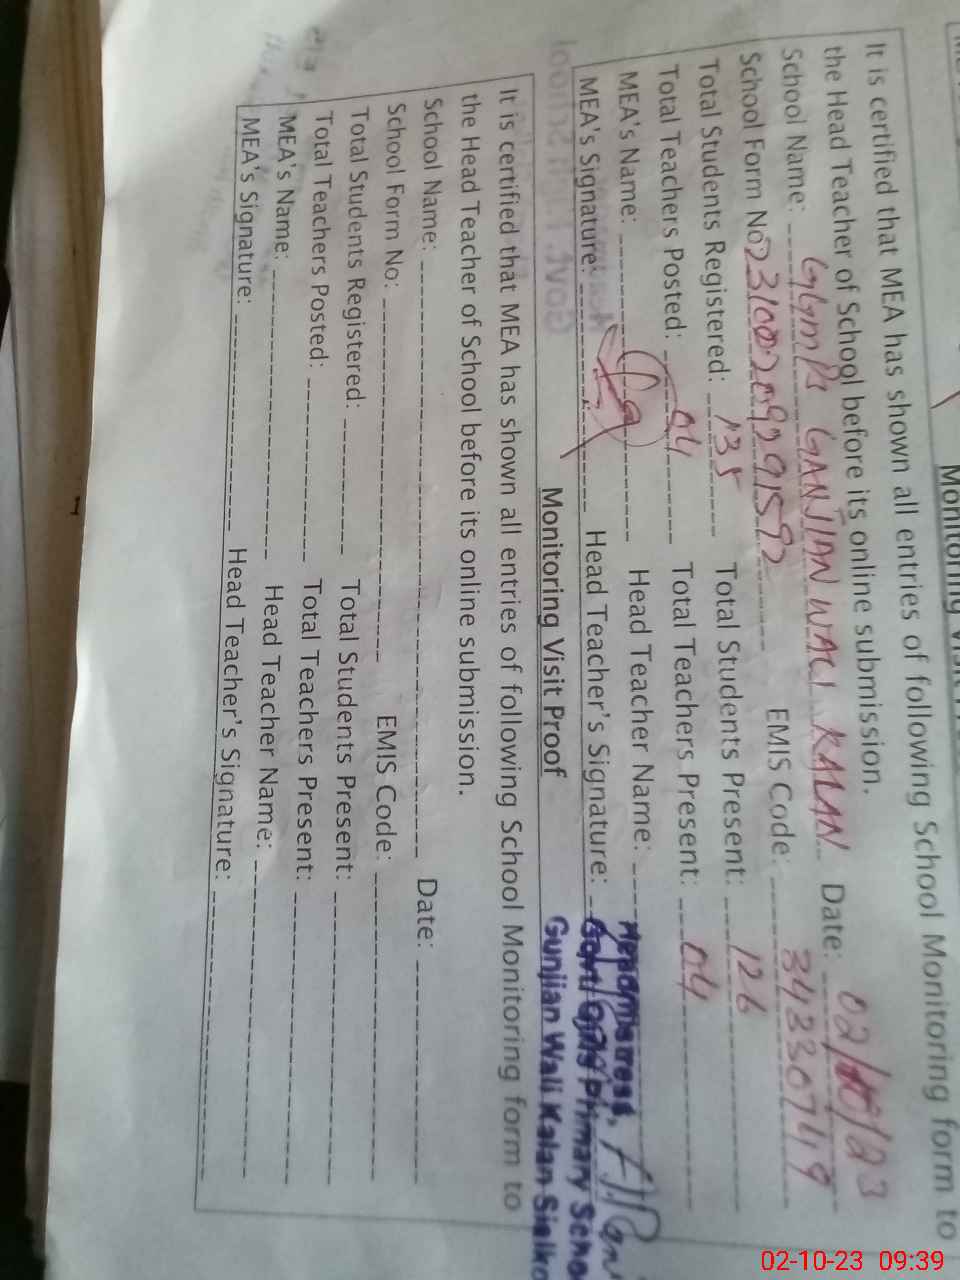 It is certified that MEA has shown all entries of following School Monitoring form to
the Head Teacher of School before its online submission.
School Name: GGMPS GANJIAN WALI KALAN Date: 02/10/23
School Form No: EMIS Code: 34330749
Total Students Registered: 135 Total Students Present: 126
Total Teachers Posted: 04 Total Teachers Present: 04
MEA's Name: Head Teacher Name:
MEA's Signature: Head Teacher's Signature:
Headmistress,
Govt Girls Primary Scho
Gunjian Wali Kalan Sialko
Monitoring Visit Proof
It is certified that MEA has shown all entries of following School Monitoring form to
the Head Teacher of School before its online submission.
School Name: Date:
School Form No: EMIS Code:
Total Students Registered: Total Students Present:
Total Teachers Posted: Total Teachers Present:
MEA's Name: Head Teacher Name:
MEA's Signature: Head Teacher's Signature:
02-10-23 09:39